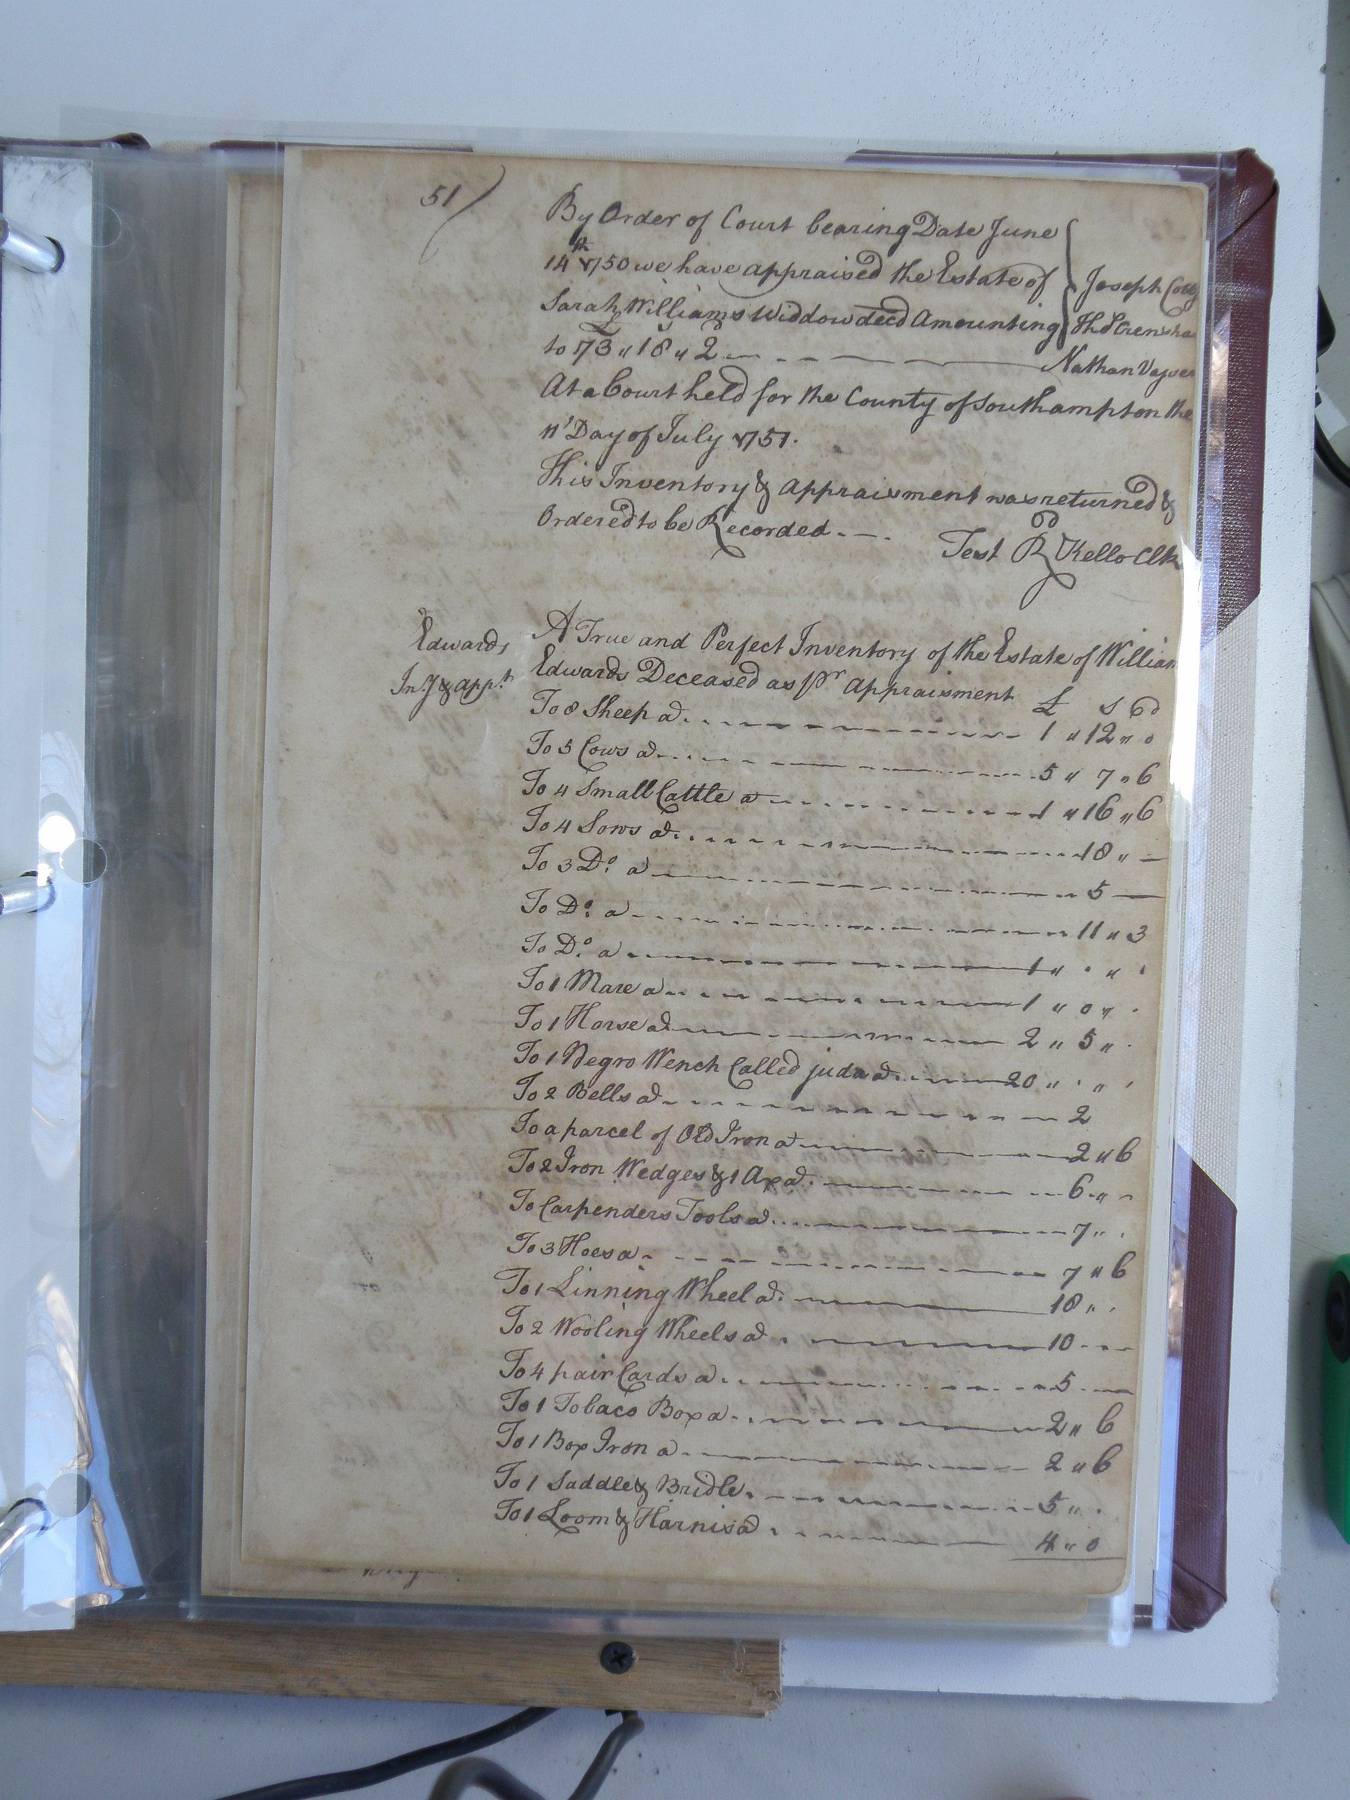 51)
By Order of Court bearing Date June
14th 1750 we have appraised the Estate of
Sarah Williams Widdow decd Amounting
to £73 " 18 " 2
Joseph
Thos Crensha
Nathan
At a Court held for the County of Southampton the
11' Day of July 1751.
This Inventory & appraisment was returned &
Ordered to be Recorded
Test R Kello Clk
Edwards
Inv.y & app.t
A True and Perfect Inventory of the Estate of William
Edwards Deceased as pr appraisment £ s d
To 8 Sheep a 1 " 12 " 0
To 5 Cows a 5 " 7 " 6
To 4 Small Cattle a 1 " 16 " 6
To 4 Sows a 18 " —
To 3 Do. a 5 —
To Do. a 11 " 3
To Do. a 1 " . " .
To 1 Mare a 1 " 0 " .
To 1 Horse a 2 " 5 " .
To 1 Negro Wench Called juda a 20 " . " .
To 2 Bells a 2
To a parcel of Old Iron a 2 " 6
To 2 Iron Wedges & 1 Ax a 6 " —
To Carpenders Tools a 7 " .
To 3 Hoes a 7 " 6
To 1 Linning Wheel a 18 " .
To 2 Wooling Wheels a 10 - —
To 4 pair Cards a 5 —
To 1 Tobaco Box a 2 " 6
To 1 Box Iron a 2 " 6
To 1 Saddle & Bridle 5 " .
To 1 Loom & Harnis a 4 " 0